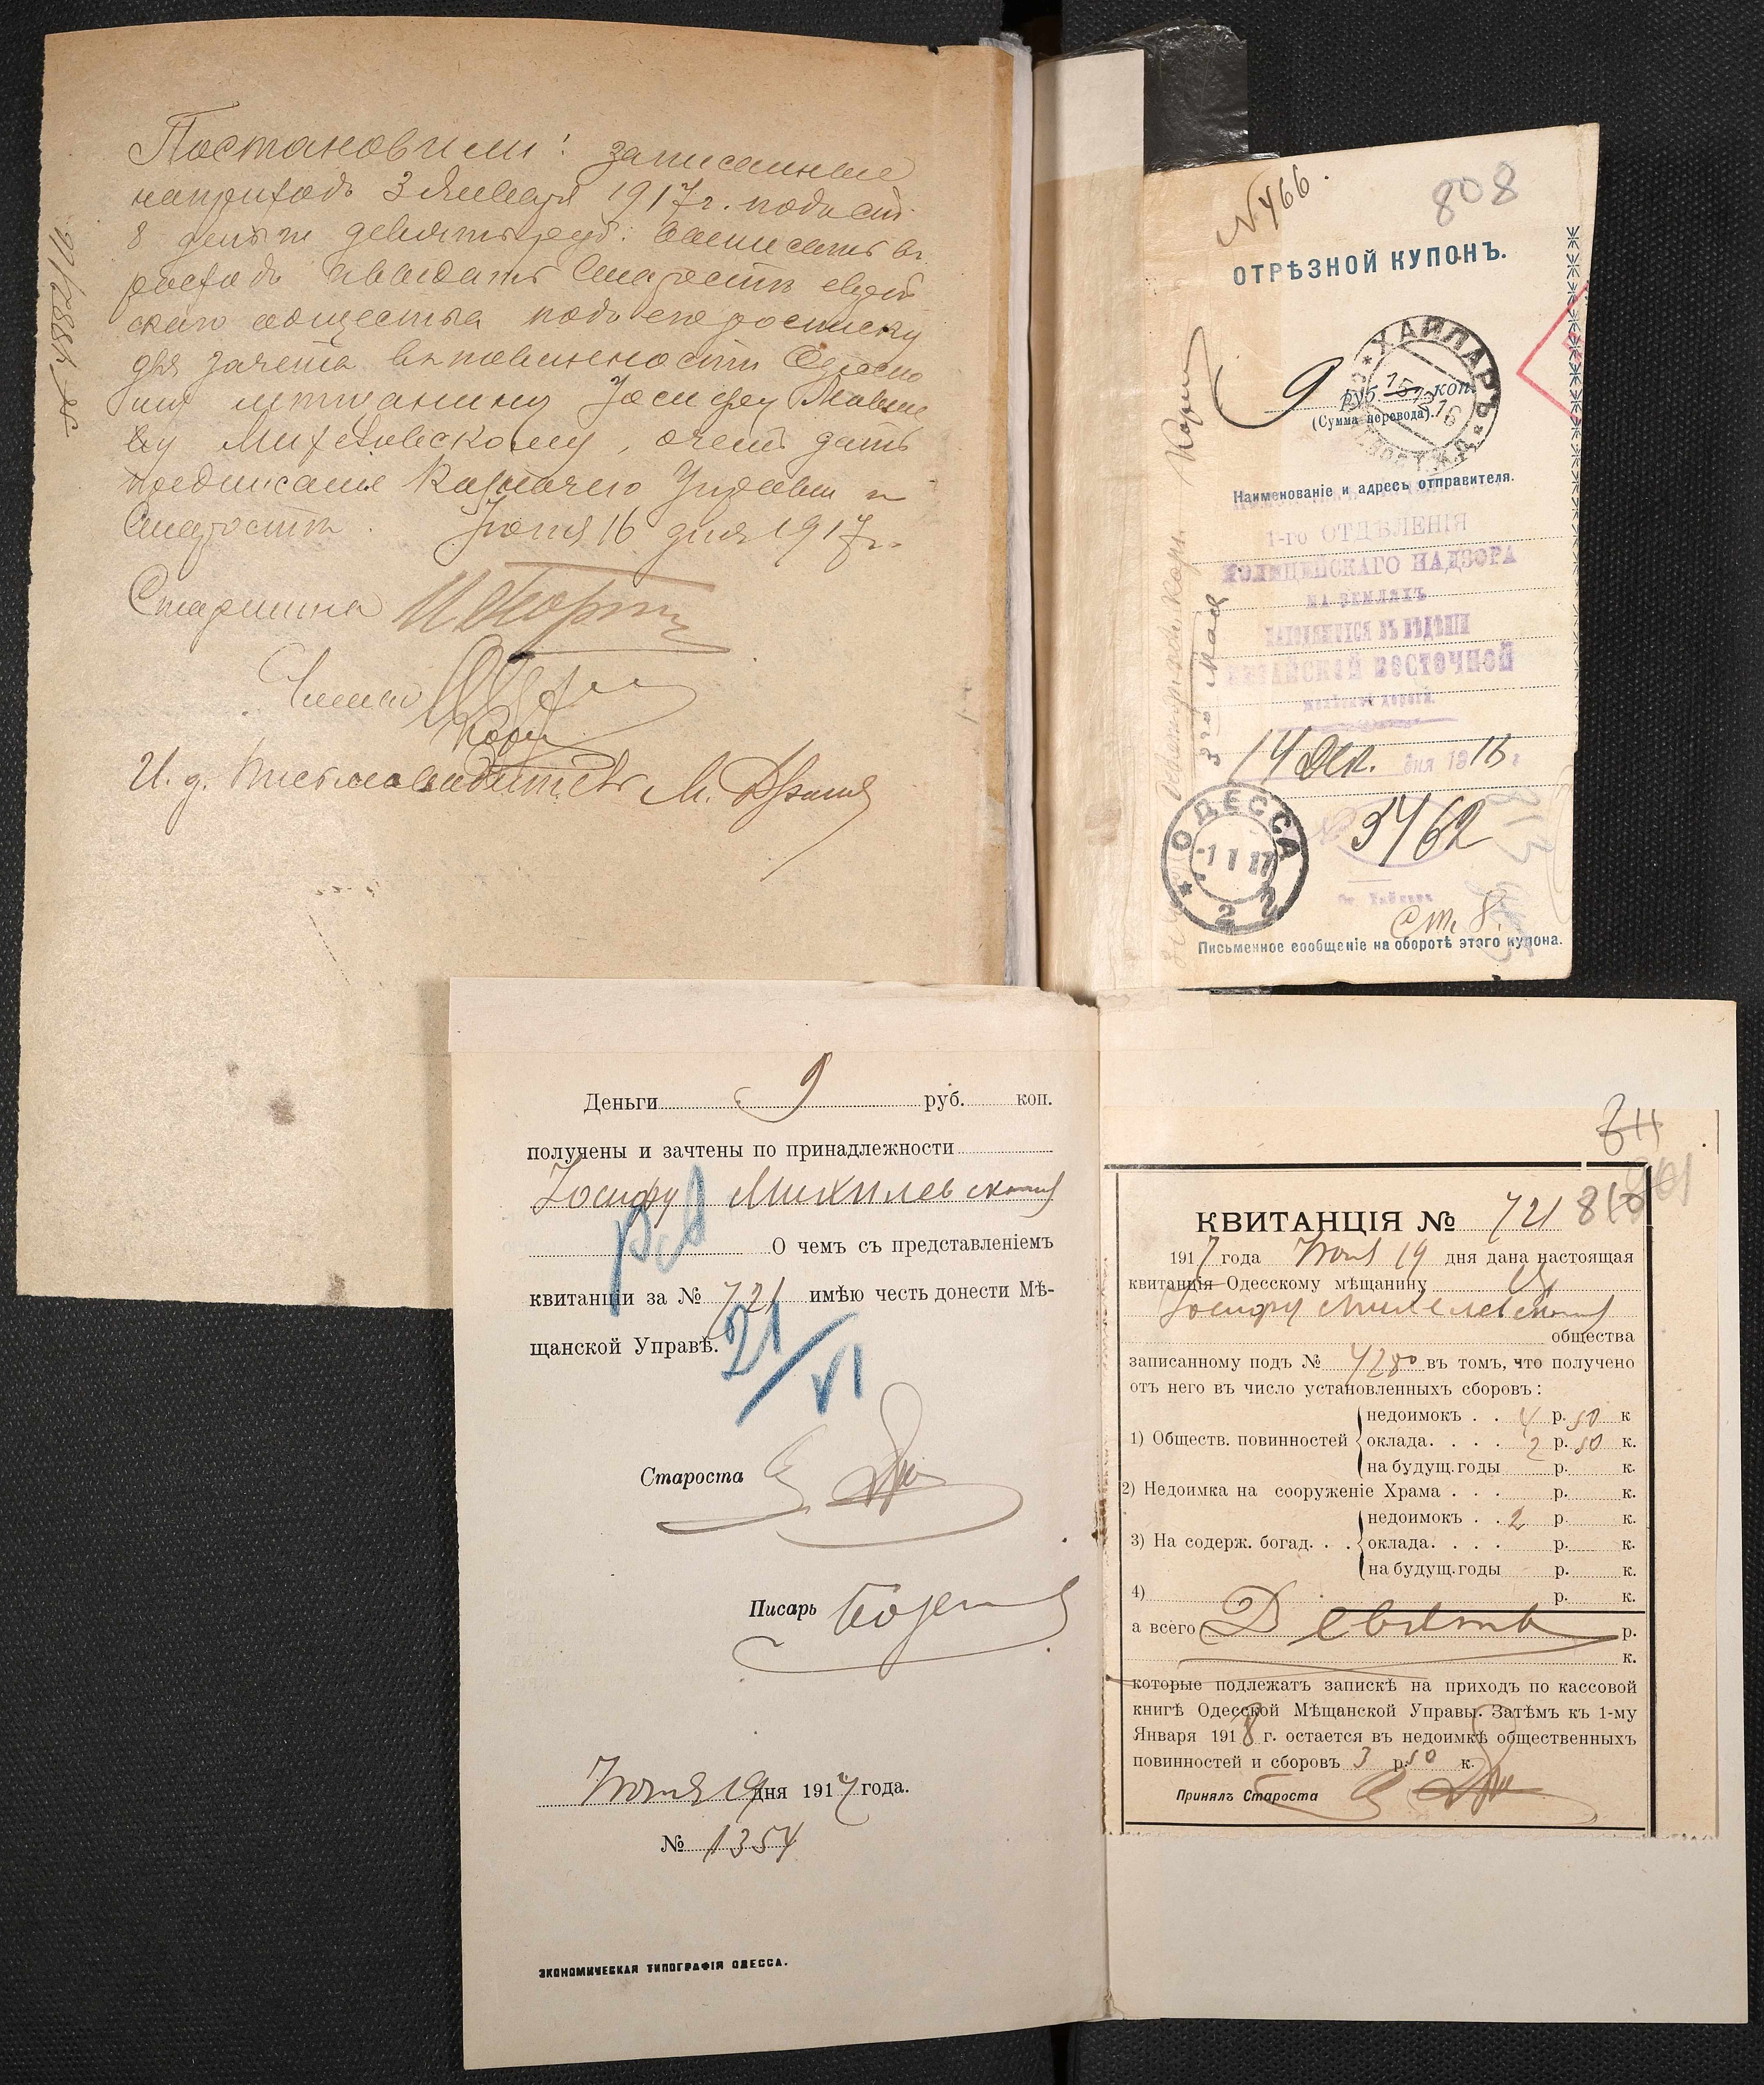 Постановили: записанные
на приходъ 3 Января 1917 г. подъ ст.
8 деньги девять руб. выписать въ
расходъ и выдать Старостѣ еврей
скаго общества подъ его росписку
для зачета въ повинности Одесско
му мѣщанину Іосифу Мовше
ву Михелевскому, о чемъ дать
предписаніе Казначею Управы и
Старостѣ. Іюня 16 дня 1917 г.
Старшина
Члены
И. д. Письмоводителя М.
N 466.
808
ОТРѢЗНОЙ КУПОНЪ.
ХАЙЛАРЪ
15 12 16
9 руб. коп.
(Сумма перевода).
Наименованіе и адресъ отправителя.
1-го ОТДѢЛЕНІЯ
ПОЛИЦЕЙСКАГО НАДЗОРА
НА ЗЕМЛЯХЪ
НАХОДЯЩИХСЯ ВЪ ВѢДѢНІИ
КИТАЙСКОЙ ВОСТОЧНОЙ
желѣзной дороги.
14 Дек. дня 1916 г
ОДЕССА
-1 1 17
2
3462
Ст. 8.
Письменное сообщеніе на оборотѣ этого купона.
Деньги 9 руб. коп.
получены и зачтены по принадлежности
Іосифу Михилевскому
О чемъ съ представленіемъ
квитанціи за № 721 имѣю честь донести Мѣ-
щанской Управѣ.
21/VI
Староста
Писарь
Іюня 19 дня 1917 года.
№ 1354
ЭКОНОМИЧЕСКАЯ ТИПОГРАФІЯ ОДЕССА.
КВИТАНЦІЯ № 721 810
1917 года Іюня 19 дня дана настоящая
квитанція Одесскому мѣщанину
Іосифу Михелевскому
общества
записанному подъ № 4280 въ томъ, что получено
отъ него въ число установленныхъ сборовъ:
недоимокъ . . 4 р. 50 к
1) Обществ. повинностей оклада. . . . 2 р. 50 к.
на будущ. годы р. к.
2) Недоимка на сооруженіе Храма . . . р. к.
недоимокъ . . 2 р. к.
3) На содерж. богад. . . оклада. . . . р. к.
на будущ. годы р. к.
4) р. к.
а всего Девять р.
к.
которые подлежатъ запискѣ на приходъ по кассовой
книгѣ Одесской Мѣщанской Управы. Затѣмъ къ 1-му
Января 1918 г. остается въ недоимкѣ общественныхъ
повинностей и сборовъ 3 р. 50 к.
Принялъ Староста